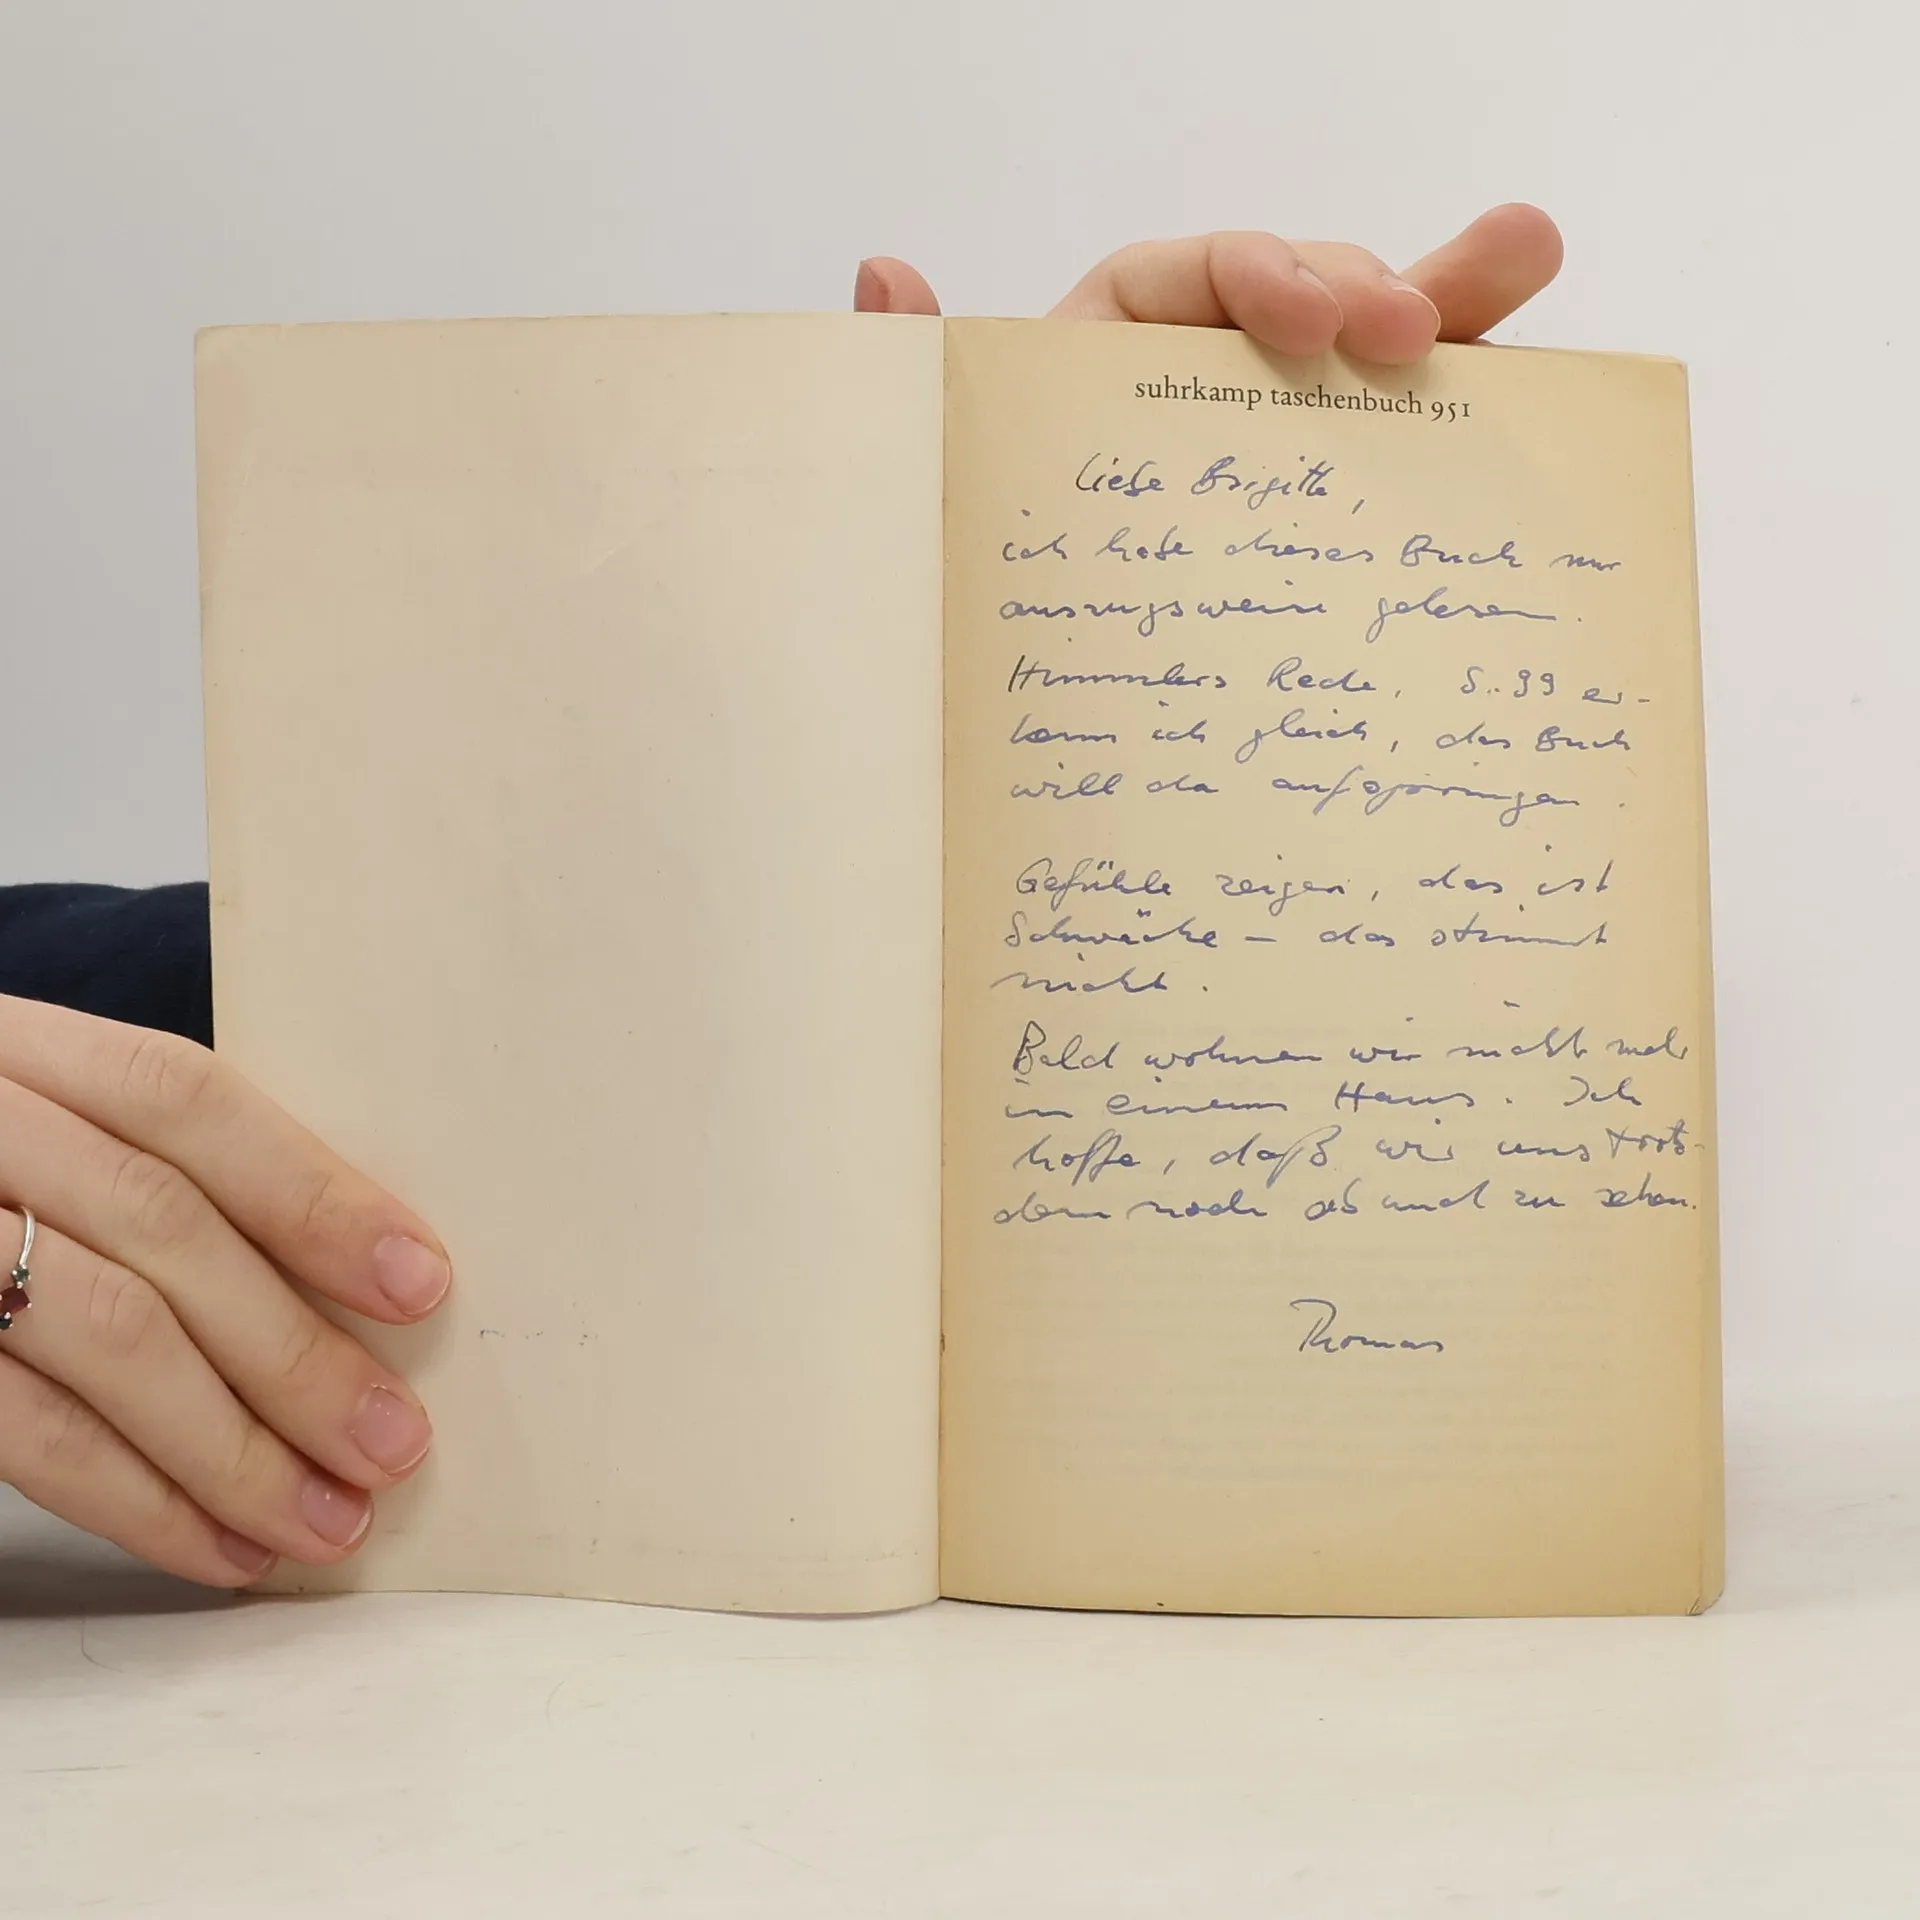 suhrkamp taschenbuch 951
Liebe Brigitte,
ich habe dieses Buch nur
auszugsweise gelesen.
Himmlers Rede, S. 99 er-
kenn ich gleich, das Buch
will da aufspringen.
Gefühle zeigen, das ist
Schwäche – das stimmt
nicht.
Bald wohnen wir nicht mehr
in einem Haus. Ich
hoffe, daß wir uns trotz-
dem noch ab und zu sehen.
Thomas